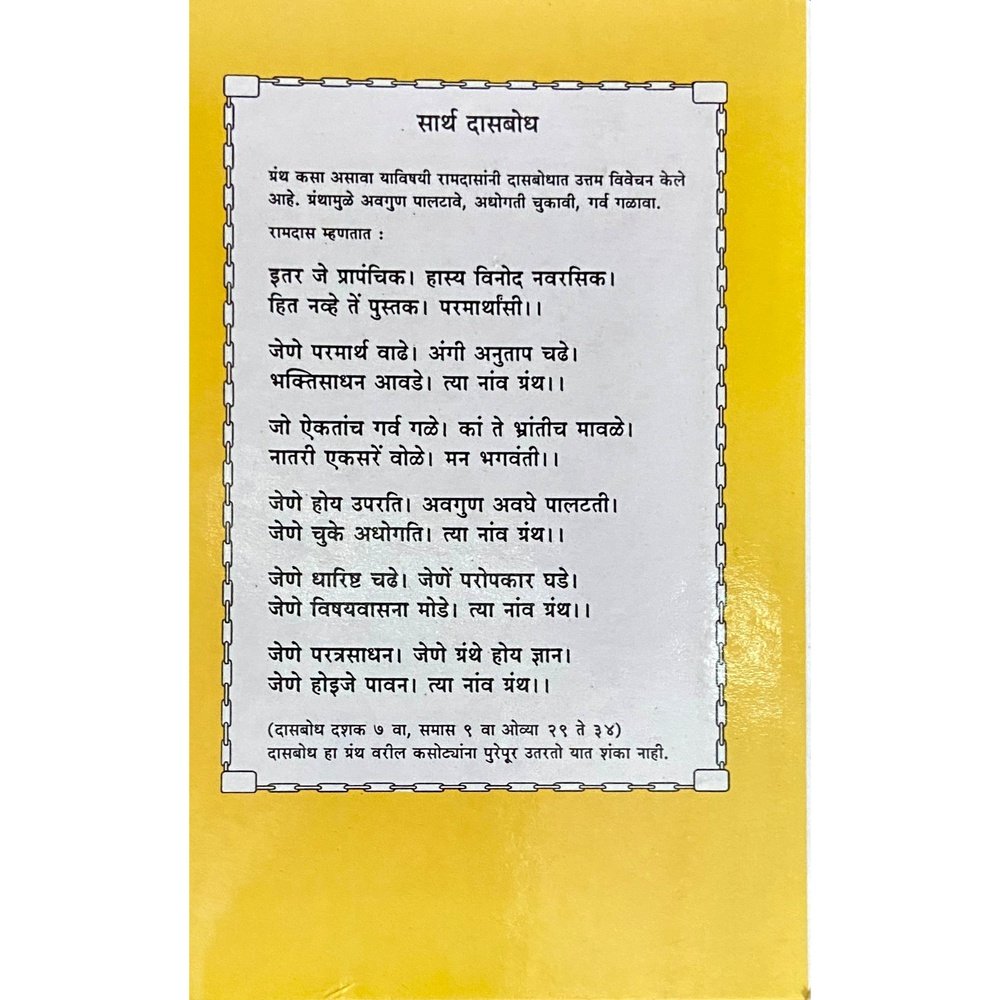 सार्थ दासबोध
ग्रंथ कसा असावा याविषयी रामदासांनी दासबोधात उत्तम विवेचन केले
आहे. ग्रंथामुळे अवगुण पालटावे, अधोगती चुकावी, गर्व गळावा.
रामदास म्हणतात :
इतर जे प्रापंचिक। हास्य विनोद नवरसिक।
हित नव्हे तें पुस्तक। परमार्थांसी।।
जेणे परमार्थ वाढे। अंगी अनुताप चढे।
भक्तिसाधन आवडे। त्या नांव ग्रंथ।।
जो ऐकतांच गर्व गळे। कां ते भ्रांतीच मावळे।
नातरी एकसरें वोळे। मन भगवंती।।
जेणे होय उपरति। अवगुण अवघे पालटती।
जेणे चुके अधोगति। त्या नांव ग्रंथ।।
जेणे धारिष्ट चढे। जेणें परोपकार घडे।
जेणे विषयवासना मोडे। त्या नांव ग्रंथ।।
जेणे परत्रसाधन। जेणे ग्रंथे होय ज्ञान।
जेणे होइजे पावन। त्या नांव ग्रंथ।।
(दासबोध दशक ७ वा, समास ९ वा ओव्या २९ ते ३४)
दासबोध हा ग्रंथ वरील कसोट्यांना पुरेपूर उतरतो यात शंका नाही.